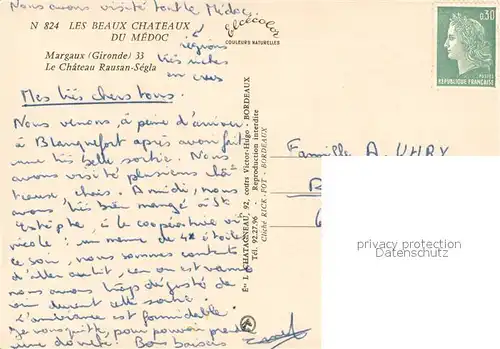 Nous avons visité tout le Médoc,
régions
très riches
en crus
N 824 LES BEAUX CHATEAUX
DU MÉDOC
Margaux (Gironde) 33
Le Château Rausan-Ségla
elcécolor
COULEURS NATURELLES
0,30
POSTES
REPUBLIQUE FRANÇAISE
Mes très chers tous.
Nous venons, à peine d'arriver
à Blanquefort après avoir fait
une très belle sortie. Nous
avons visité plusieurs châ-
teaux, chais. A midi, nous
avons très bien mangé à St
Estèphe, à la coopérative vi-
nicole : un menu de 4* étoiles
ce soir, nous sommes contents
d'aller au lit, car on est vannés
nous avons trop dégusté de
vin durant cette sortie.
L'ambiance est formidable.
Je vous quitte, pour pouvoir prendre
une douche! Bons baisers
Éts L. CHATAGNEAU, 92, cours Victor-Hugo - BORDEAUX
Tél. 92.27.96 - Reproduction interdite
Cliché RICK-POT - BORDEAUX
Famille A. UHRY
privacy protection
Datenschutz